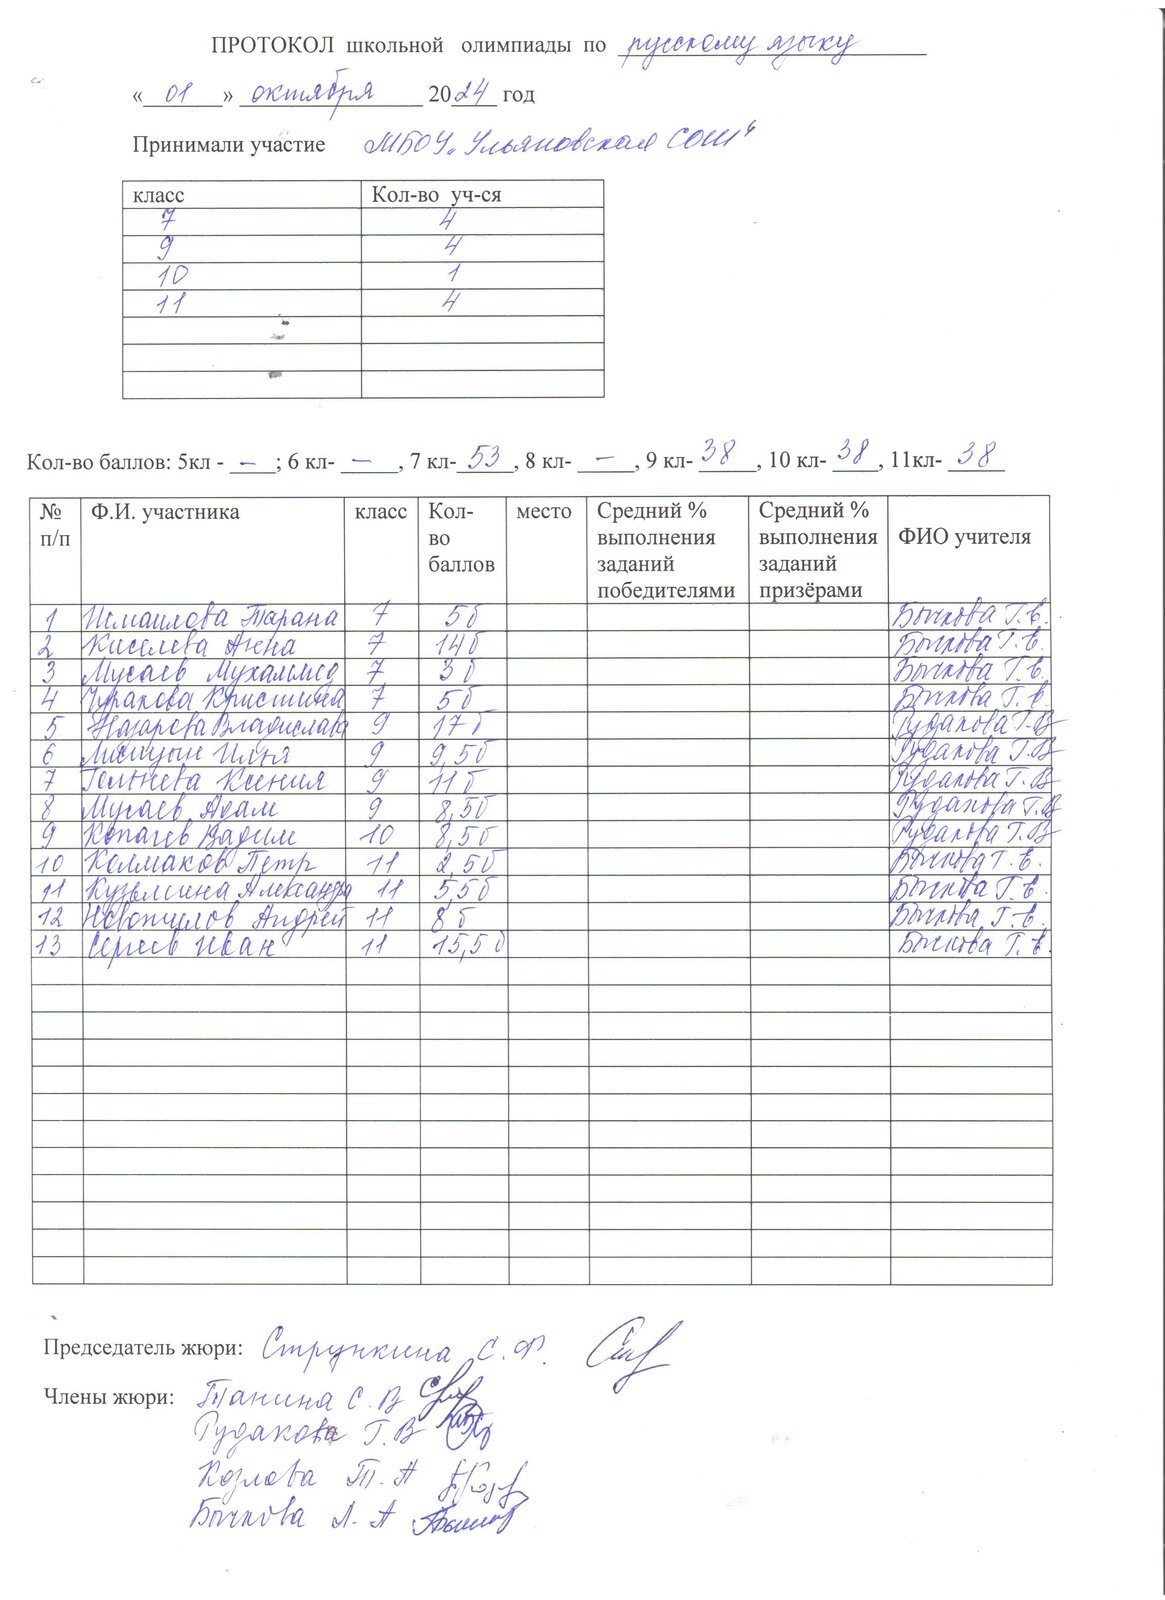 ПРОТОКОЛ школьной олимпиады по русскому языку
«01» октября 2024 год
Принимали участие МБОУ "Ульяновская СОШ"
класс Кол-во уч-ся
7 4
9 4
10 1
11 4
Кол-во баллов: 5кл - –; 6 кл- –, 7 кл- 53, 8 кл- –, 9 кл- 38, 10 кл- 38, 11кл- 38
№ п/п Ф.И. участника класс Кол-во баллов место Средний % выполнения заданий победителями Средний % выполнения заданий призёрами ФИО учителя
1 Исмаилова Тарана 7 5б Бычкова Г.В.
2 Киселева Анна 7 14б Бычкова Г.В.
3 Мусаев Мухаммед 7 3б Бычкова Г.В.
4 Чуракова Кристина 7 5б Бычкова Г.В.
5 Назарова Владислава 9 17б Рудакова Г.В
6 Илья 9 9,5б Рудакова Г.В
7 Ксения 9 11б Рудакова Г.В
8 Мусаев Адам 9 8,5б Рудакова Г.В
9 Копачев Вадим 10 8,5б Рудакова Г.В
10 Колмаков Петр 11 2,5б Бычкова Г.В.
11 Кузьмина Александра 11 5,5б Бычкова Г.В.
12 Новопулов Андрей 11 8б Бычкова Г.В.
13 Сергеев Иван 11 15,5б Бычкова Г.В.
Председатель жюри: Стрункина С.Ф.
Члены жюри: Танина С.В
Рудакова Г.В
Козлова Т.А
Бычкова Л.А